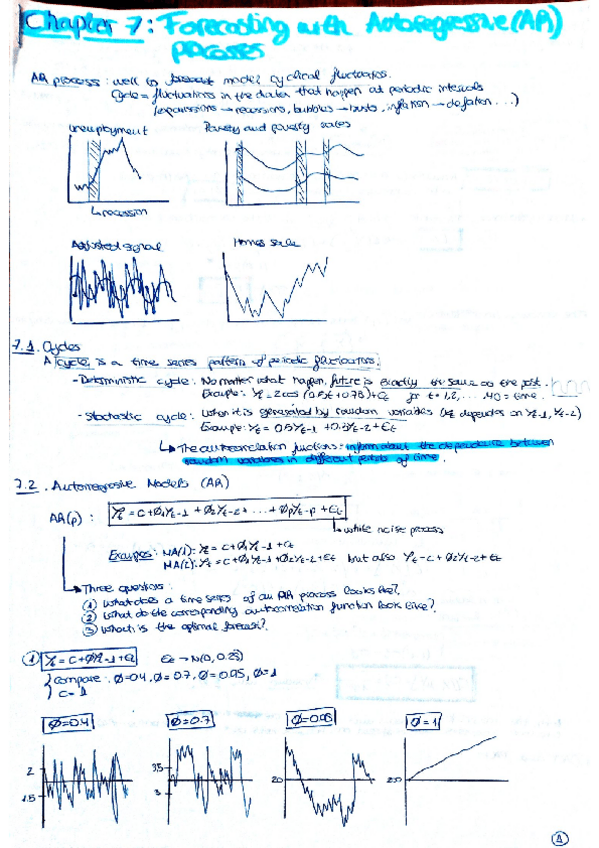 Chapter 7: Forecasting with Autoregressive (AR)
processes
AR process: well to forecast model cyclical fluctuations.
Cycle = fluctuations in the data that happen at periodic intervals
(expansions → recessions, bubbles → busts, inflation → deflation ...)
Unemployment
Poverty and poverty rates
↳ recession
Adjusted signal
Homes sale
7.1. Cycles
A cycle is a time series pattern of periodic fluctuations.
- Deterministic cycle: No matter what happen, future is exactly the same as the past.
Example: Yt = 2cos(0.5t+0.78)+εt for t=1,2,....40 = time.
- Stochastic cycle: When it is generated by random variables (Yt depends on Yt-1, Yt-2)
Example: Yt = 0.5Yt-1 + 0.3Yt-2 + εt
↳ The autocorrelation functions inform about the dependence between
random variables in different periods of time.
7.2. Autorregresive Models (AR)
AR(p): Yt = c+Ø1Yt-1 + Ø2Yt-2 + ... + ØpYt-p + εt
↳ white noise process
Examples: MA(1): Yt = c+Ø1Yt-1 +εt
MA(2): Yt = c+Ø1Yt-1 +Ø2Yt-2+εt but also Yt = c+Ø2Yt-2+εt
↳ Three questions:
① What does a time series of an AR process looks like?
② What do the corresponding autocorrelation function look like?
③ What is the optimal forecast?
① Yt = c+ØYt-1+εt εt → N(0, 0.25)
compare: Ø=0.4, Ø=0.7, Ø=0.95, Ø=1
c=1
Ø=0.4
Ø=0.7
Ø=0.95
Ø=1
2
1.5
3.5
3
20
250
1